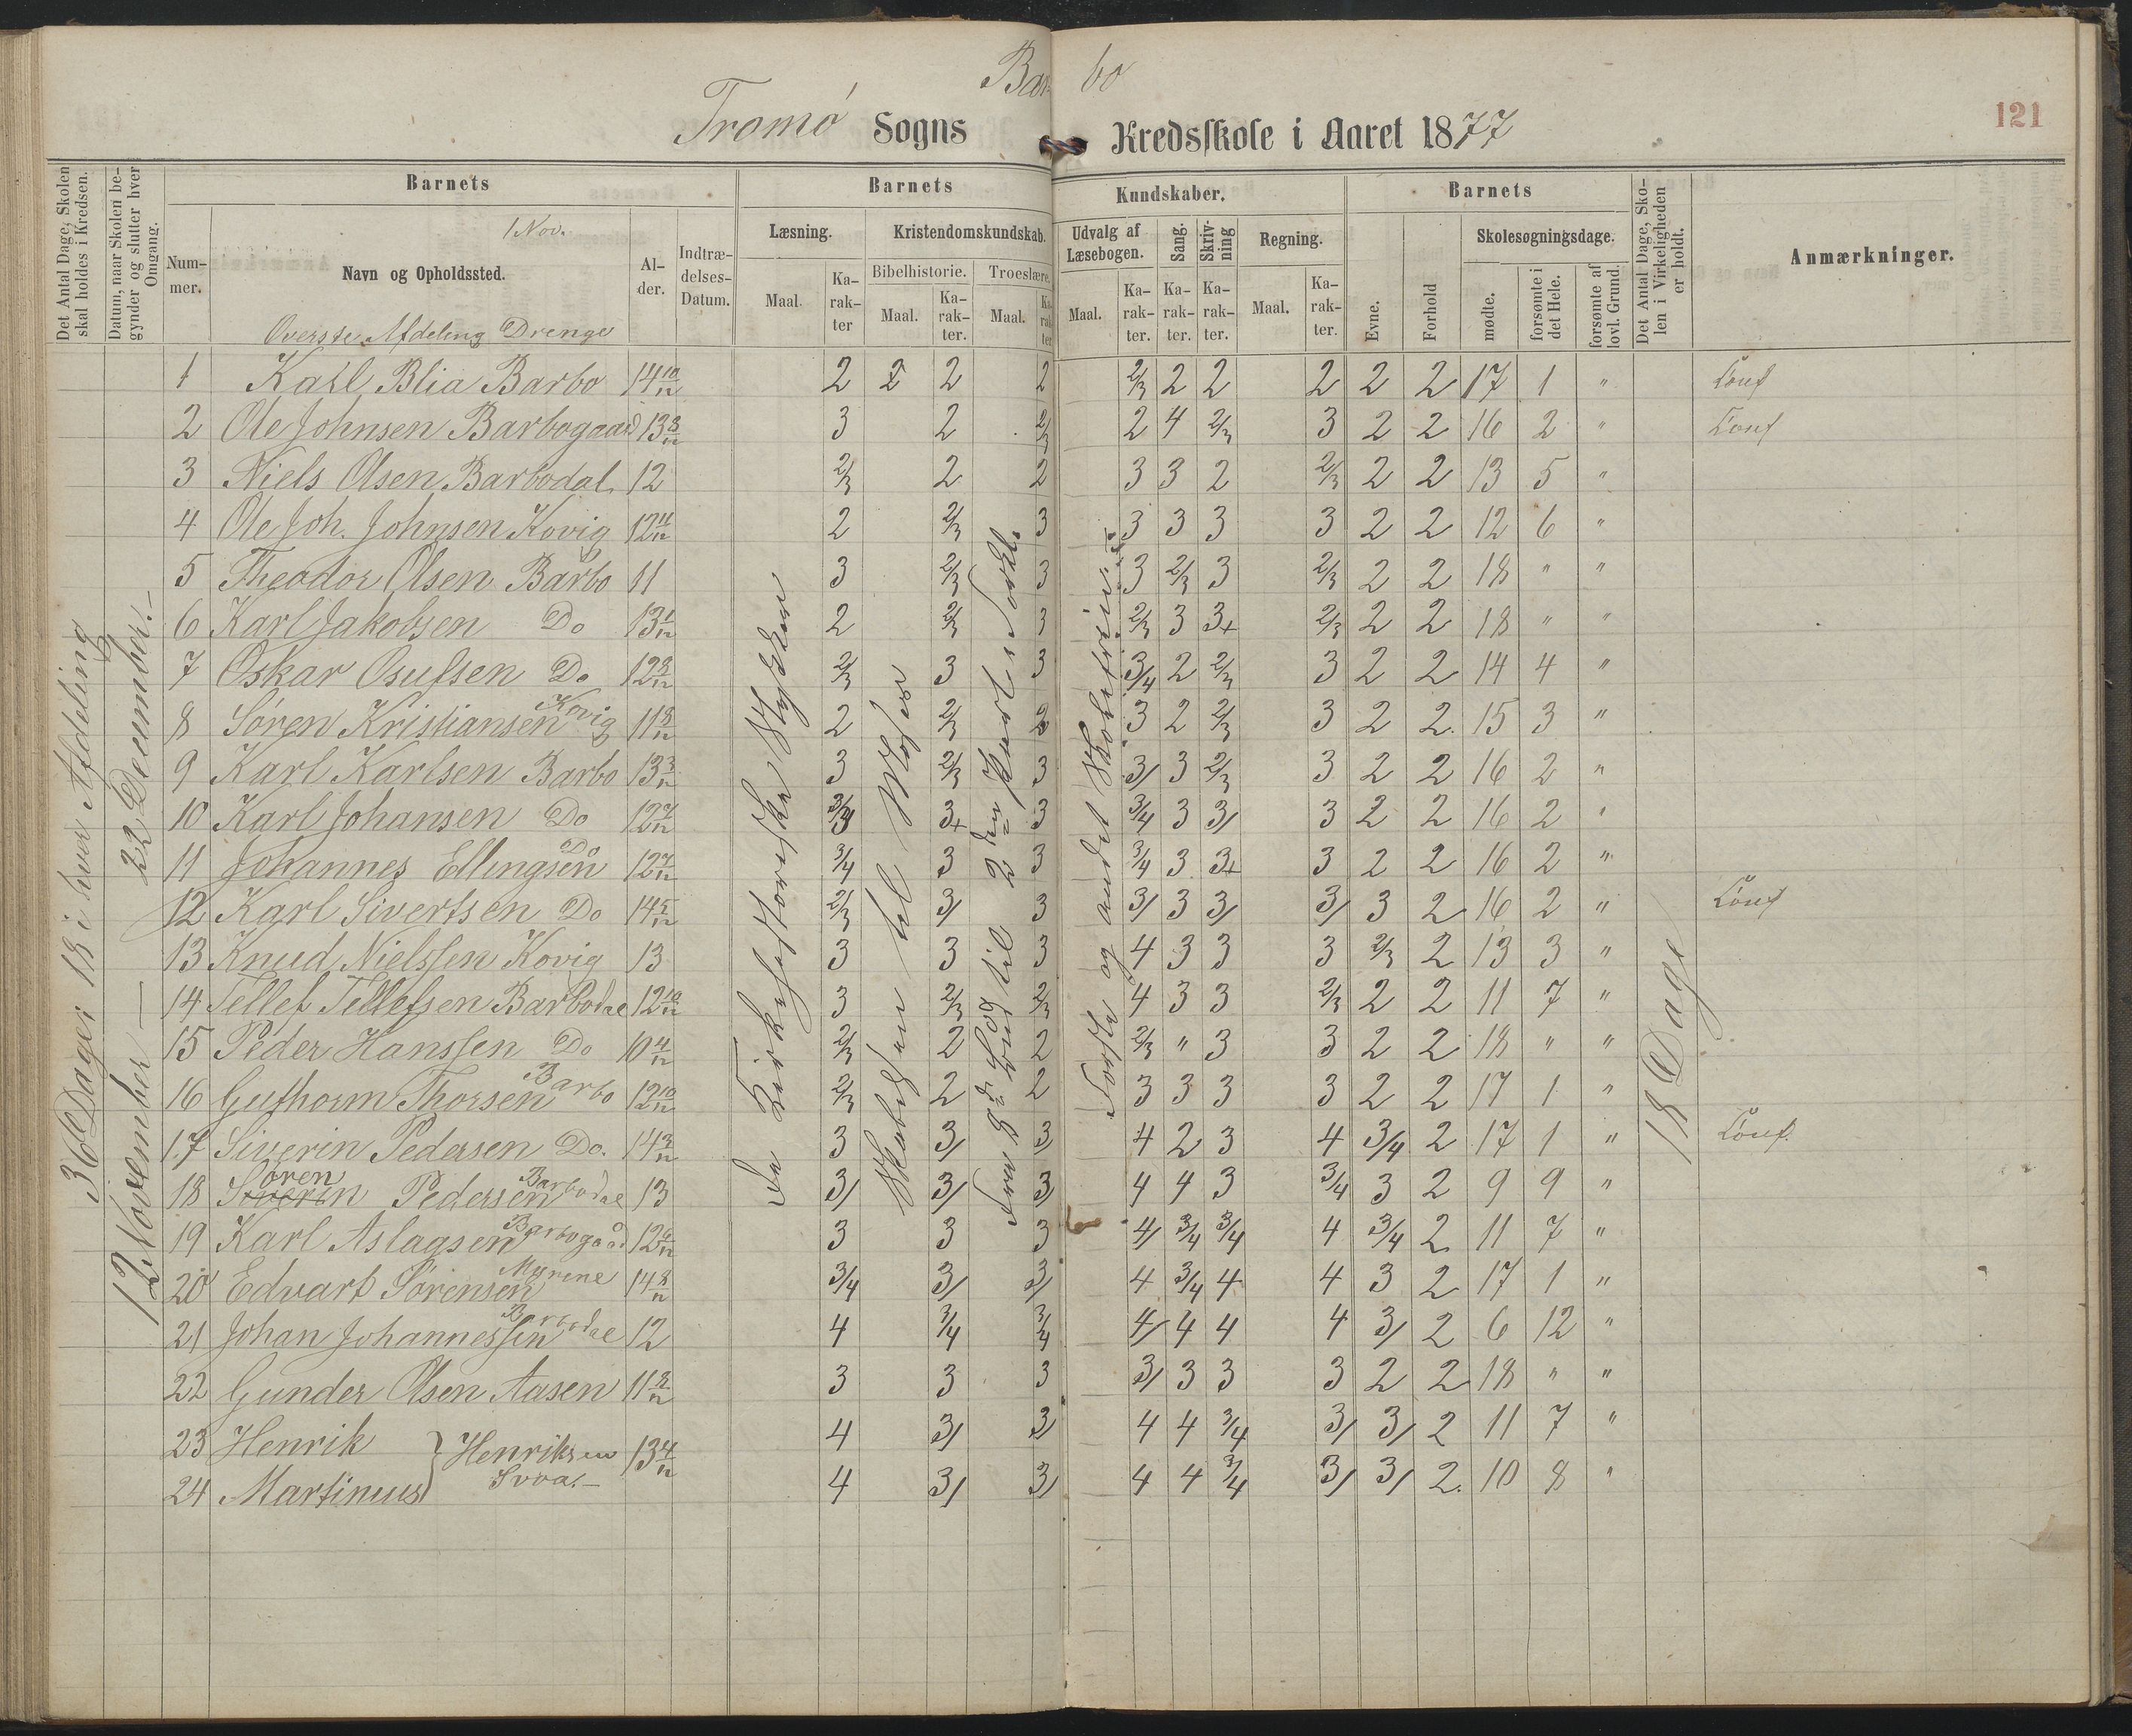 Barbo
Tromø Sogns Kredsskole i Aaret 1877
121
Det Antal Dage, Skolen skal holdes i Kredsen.
Datum, naar Skolen begynder og slutter hver Omgang.
Barnets
Nummer.
1 Nov.
Navn og Opholdssted.
Alder.
Indtrædelses-Datum.
Barnets Kundskaber.
Læsning.
Maal.
Karakter
Kristendomskundskab.
Bibelhistorie.
Maal.
Karakter.
Troeslære.
Maal.
Karakter
Udvalg af Læsebogen.
Maal.
Karakter.
Sang.
Karakter.
Skrivning
Karakter.
Regning.
Maal.
Karakter.
Barnets
Evne.
Forhold
Skolesøgningsdage.
mødte.
forsømte i det Hele.
forsømte af lovl. Grund.
Det Antal Dage, Skolen i Virkeligheden er holdt.
Anmærkninger.
Overste Afdeling Drenge
36 Dage 18 i hver Afdeling
12 November — 22 December. —
De Kirkehistoriske Stykker
Skabelsen til Moses
Første og andet Skoletrin
18 Dage
1 Karl Blia Barbo 14 10/12 2 2 2 2 2/3 2 2 2 2 2 17 1 " Conf
2 Ole Johnsen Barbogaard 13 8/12 3 2 2/3 2 4 2/3 3 2 2 16 2 " Conf
3 Niels Olsen Barbodal 12 2/3 2 2 3 3 2 2/3 2 2 13 5 "
4 Ole Joh. Johnsen Kovig 12 11/12 2 2/3 3 3 3 3 3 2 2 12 6 "
5 Theodor Olsen Barbo 11 3 2/3 3 3 2/3 3 2/3 2 2 18 " "
6 Karl Jakobsen Do 13 1/12 2 2/3 3 2/3 3 3+ 2/3 2 2 18 " "
7 Oskar Osufsen Do 12 8/12 2/3 3 3 3/4 2 2/3 3 2 2 14 4 "
8 Søren Kristiansen Kovig 11 8/12 2 2/3 3 2 2/3 3 2 2 15 3 "
9 Karl Karlsen Barbo 13 3/12 3 2/3 3 3/ 3 2/3 3 2 2 16 2 "
10 Karl Johansen Do 12 7/12 3/4 3+ 3 3/4 3 3/ 3 2 2 16 2 "
11 Johannes Ellingsen Do 12 7/12 3/4 3 3 3/4 3 3+ 3 2 2 16 2 "
12 Karl Sivertsen Do 14 5/12 2/3 3/ 3 3/ 3 3/ 3/ 3 2 16 2 " Conf
13 Knud Nielssen Kovig 13 3 3 3 4 3 3 3 2/3 2 13 3 "
14 Tellef Tellefsen Barbodal 12 10/12 3 2/3 2/3 4 3 3 2/3 2 2 11 7 "
15 Peder Hanssen Do 10 4/12 2/3 2 2 2/3 " 3 3 2 2 18 " "
16 Guthorm Thorsen Barbo 12 10/12 2/3 2 2 3 3 3 3 2 2 17 1 "
17 Siverin Pedersen Do. 14 3/12 3 3/ 3/ 4 2 3 4 3/4 2 17 1 " Conf.
18 Søren Pedersen Barbodal 13 3/ 3/ 3/ 4 4 3 3/4 3 2 9 9 "
19 Karl Aslagsen Barbogaad 12 6/12 3 3 3 4/ 3/4 3/4 4 3/4 2 11 7 "
20 Edvart Sørensen Myrene 14 8/12 3/4 3/ 3/ 4 3/4 4 4 3 2 17 1 "
21 Johan Johannessen Barbodal 12 4 3/4 3/4 4/ 4 4 4 3/ 2 6 12 "
22 Gunder Olsen Aasen 11 8/12 3 3 3 3/ 3 3 3 2 2 18 " "
23 Henrik } Henriksen 13 4/12 4 3/ 3/ 4 4 3/4 3/ 3/ 2 11 7 "
24 Martinus 4 3/ 3/ 4 4 3/4 3/ 3/ 2. 10 8 "